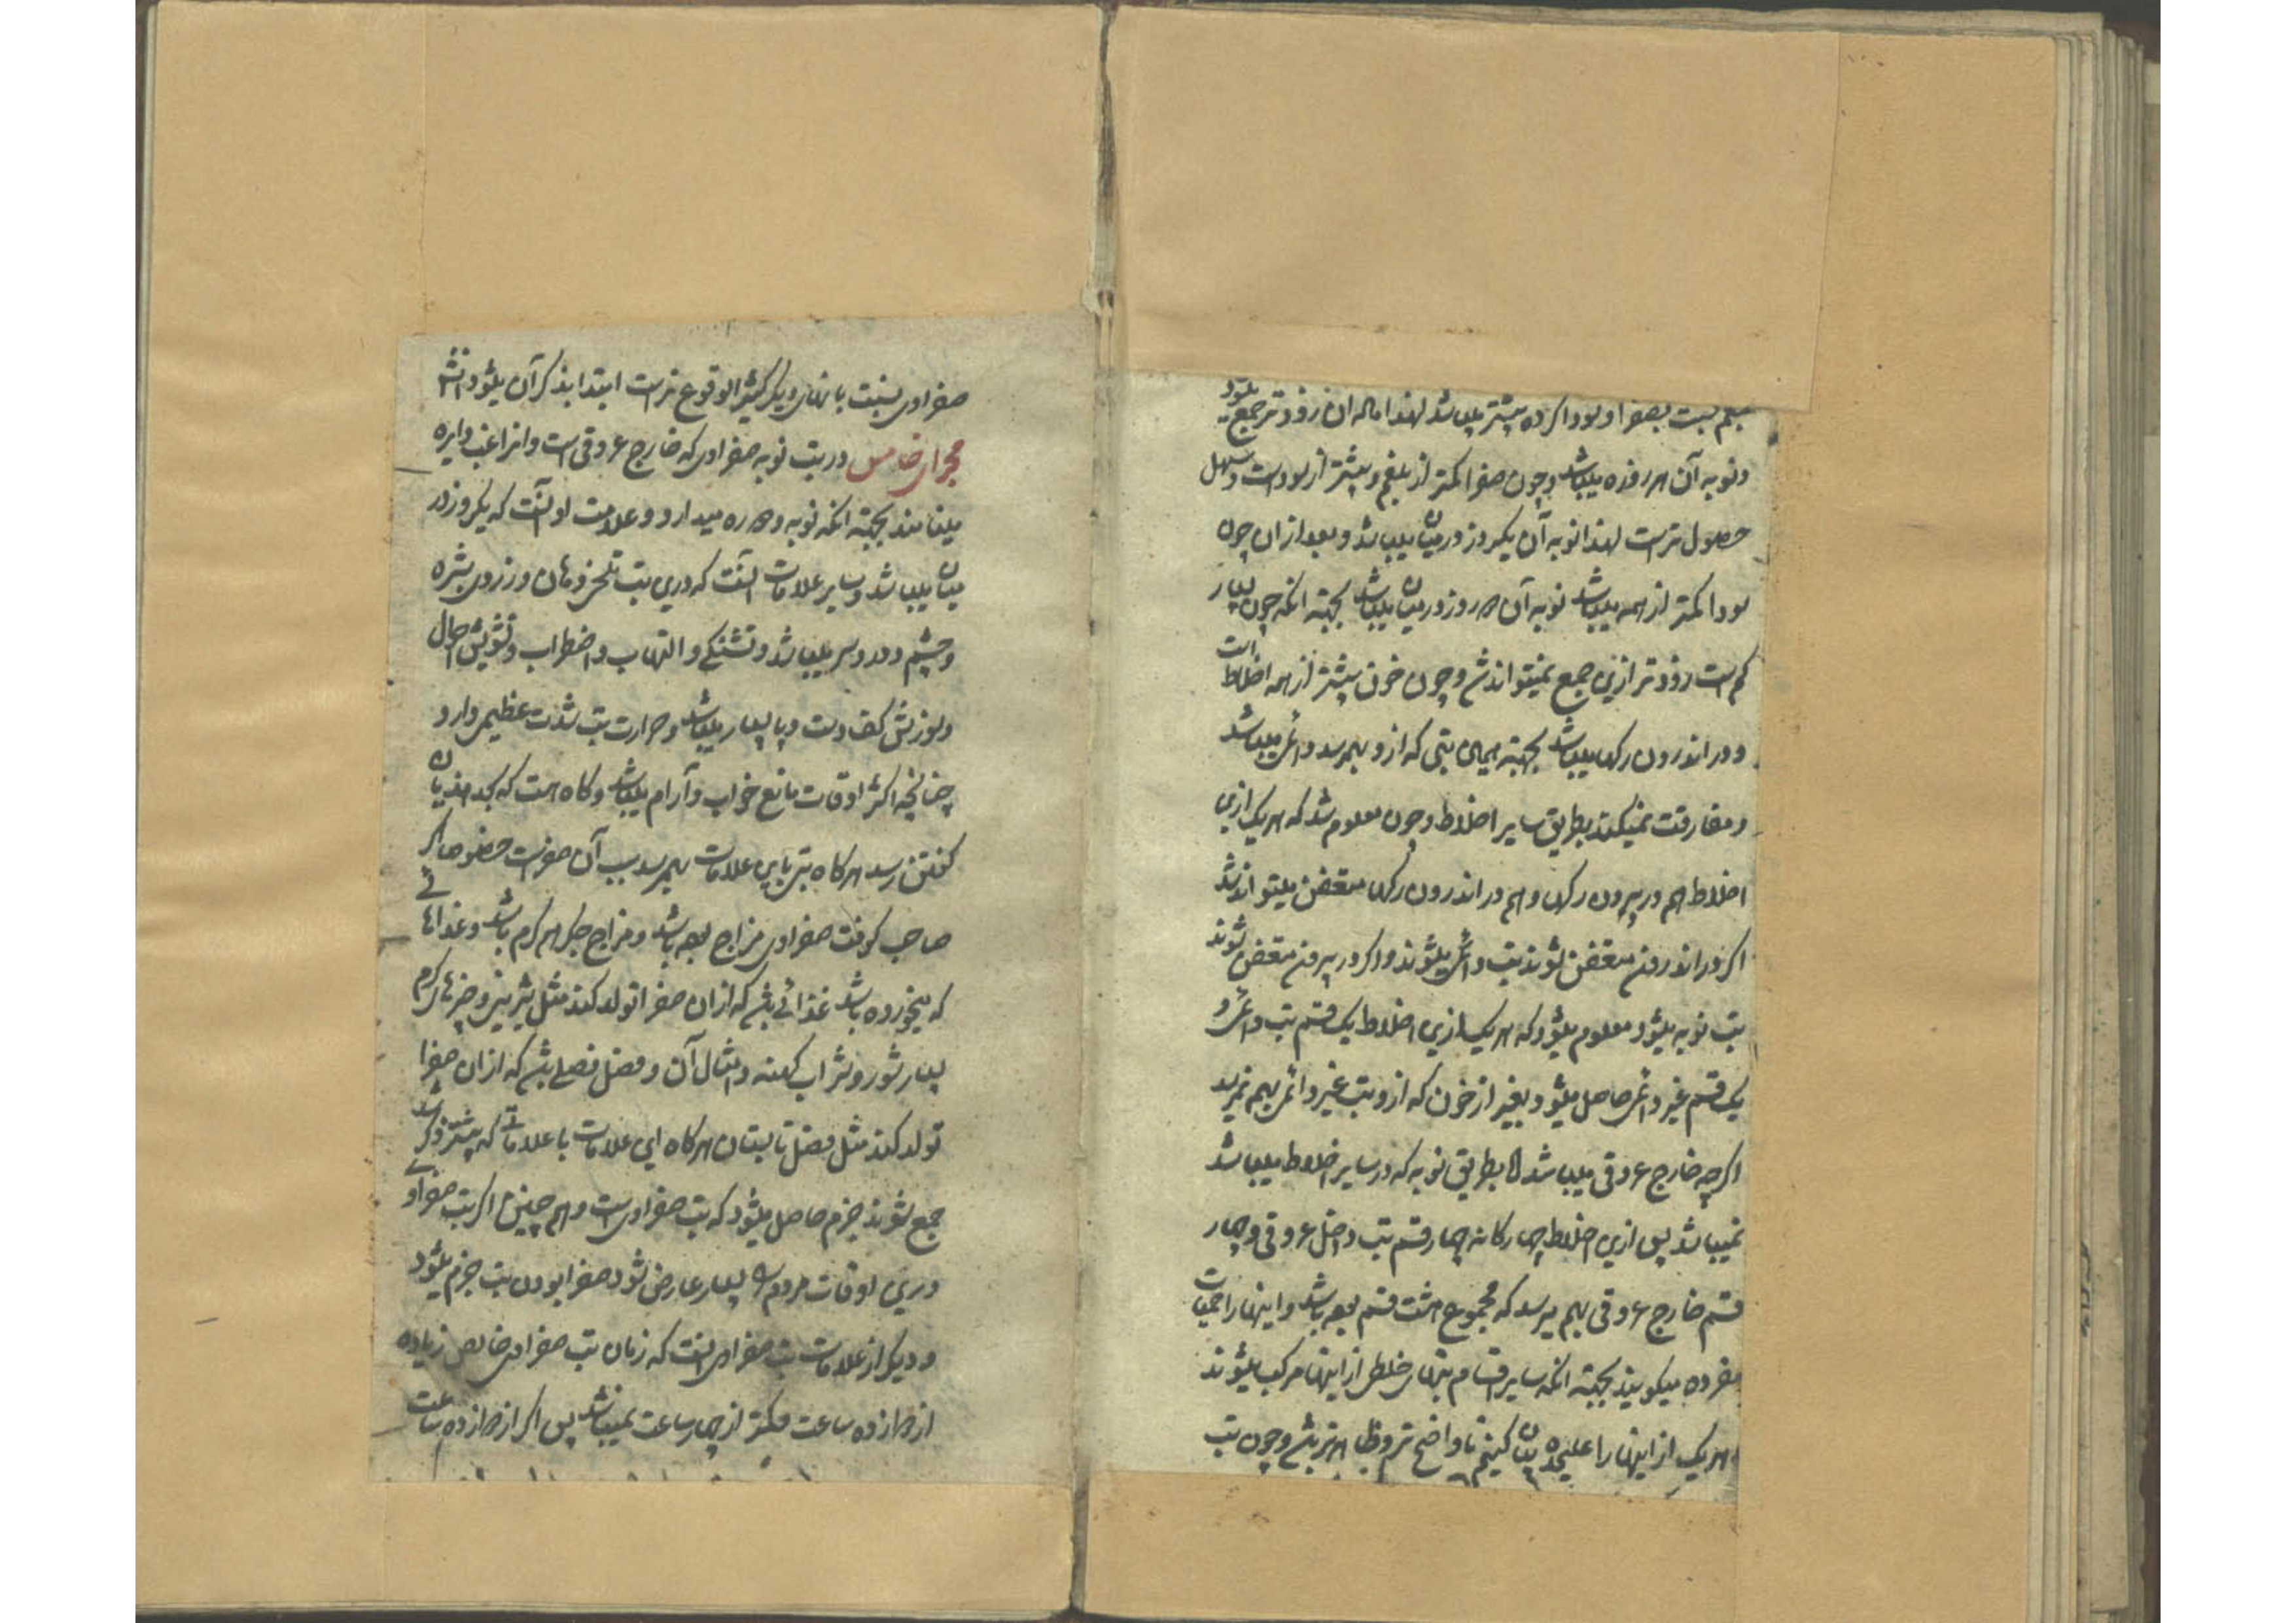 بلغم نسبت بصفرا و سودا کرده بیشتر میباشد لهذا ماده آن زودتر جمع میشود
و نوبه آن هر روزه میباشد و چون صفرا کمتر از بلغم و بیشتر از سوداست و سهل
حصول ترست لهذا نوبه آن یکروز درمیان میباشد و بعد ازان چون
سودا کمتر از همه میباشد نوبه آن دو روز درمیان میباشد بجهته انکه چون بسیار
کم است زودتر ازین جمع نمیتواند شد و چون خون بیشتر از همه اخلاط است
و در اندرون رکها میباشد بجهته همین تبی که ازو بهمرسد دائمی میباشد
و مفارقت نمیکند بطریق سایر اخلاط و چون معلوم شد که هر یک ازین
اخلاط هم در بیرون رکها و هم در اندرون رکها متعفن میتواند شد
اکر در اندرون متعفن شوند تب دائمی میشوند و اکر در بیرون متعفن شوند
تب نوبه میشود و معلوم میشود که هر یک ازین اخلاط یک قسم تب دائمی و
یک قسم غیر دائمی حاصل میشود بغیر از خون که ازو تب غیر دائمی بهم نمیرسد
اکرچه خارج عروقی میباشد اما بطریق نوبه که در سایر اخلاط میباشد
نمیباشد پس ازین اخلاط چهارکانه چهار قسم تب داخل عروقی و چهار
قسم خارج عروقی بهم میرسد که مجموع هشت قسم بوده باشد و اینها را حمیات
مفرده میکویند بجهته انکه سایر اقسام تبهای خلطی از اینها مرکب میشوند
هر یک از اینها را علیحده بیان کنیم تا واضح تر و ظاهرتر باشد و چون تب
صفراوی نسبت به تبهای دیکر کثیر الوقوع ترست ابتدا بذکر آن میشود انشا
مجرای خامس در تب نوبه صفراوی که خارج عروقی است و انرا غب دایره
مینامند بجهته انکه نوبه و دوره میدارد و علامت او آنست که یکروز در
میان میباشد و سایر علامات آنست که درین تب تلخی دهان و زردی بشره
و چشم و درد سر میباشد و تشنکی و التهاب و اضطراب و تشویش احوال
و سوزش کف دست و پا بسیار میباشد و حرارت تب شدت عظیمی دارد
چنانچه اکثر اوقات مانع خواب و آرام میباشد و کاه هست که بحد هذیان
کفتن رسد هرکاه تبی باین علامات بهمرسد سبب آن صفراست خصوصا اکر
صاحب کوفت صفراوی مزاج بوده باشد و مزاج جکر هم کرم باشد و غذاهائی
که میخورده باشد غذائی باشد که ازان صفرا تولد کند مثل شیرینی و چیزهای کرم
بسیار شور و شراب کهنه و امثال آن و فصل فصلی باشد که ازان صفرا
تولد کند مثل فصل تابستان هرکاه این علامات با علاماتی که پیشتر ذکر شد
جمع شوند جزم حاصل میشود که تب صفراوی است و هم چنین اکر تب صفراوی
درین اوقات مردم را بسیار عارض شود صفرا بودن تب جزم میشود
و دیکر از علامات تب صفراوی آنست که زمان تب صفراوی خالص زیاده
از دوازده ساعت و کمتر از چهار ساعت نمیباشد پس اکر از دوازده ساعت